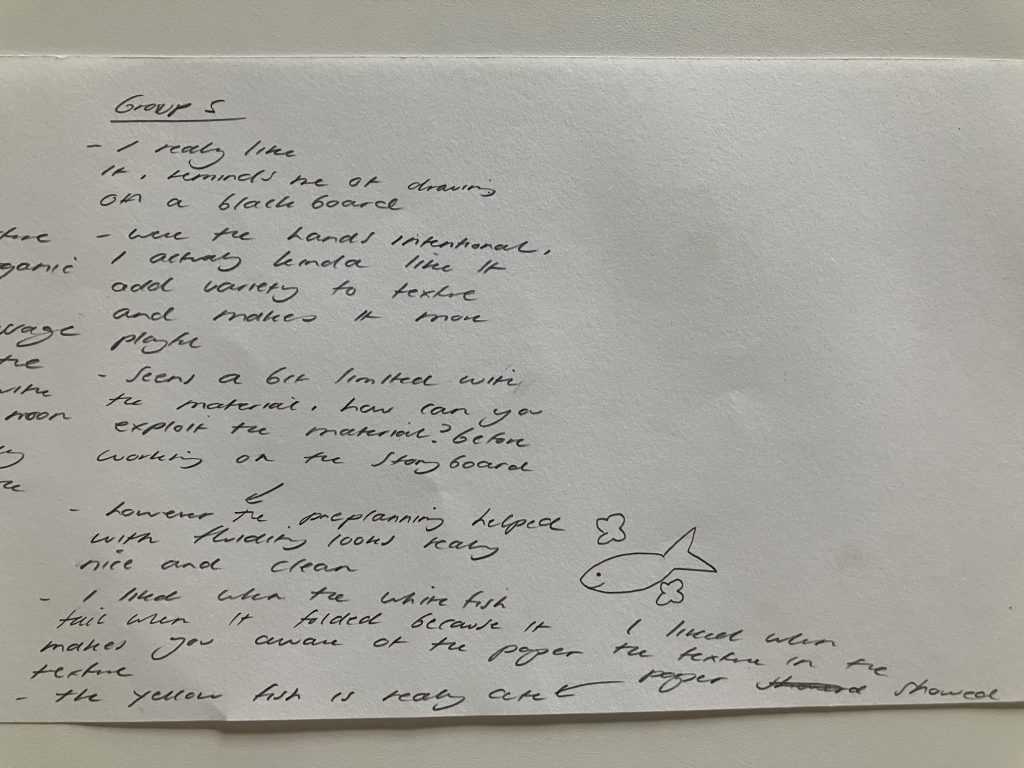 Group 5
- I really like
it, reminds me of drawing
on a blackboard
- were the hands intentional,
I actualy kinda like it
add variety to texture
and makes it more
- Seems a bit limited with
the material. how can you
exploit the material? before
working on the storyboard
- however the preplanning helped
with looks realy
nice and clean
- I liked when the white fish
tail when it folded because it
makes you aware of the paper
texture
- the yellow fish is realy cute
I liked when
the texture in the
paper showed
ganic
the
moon